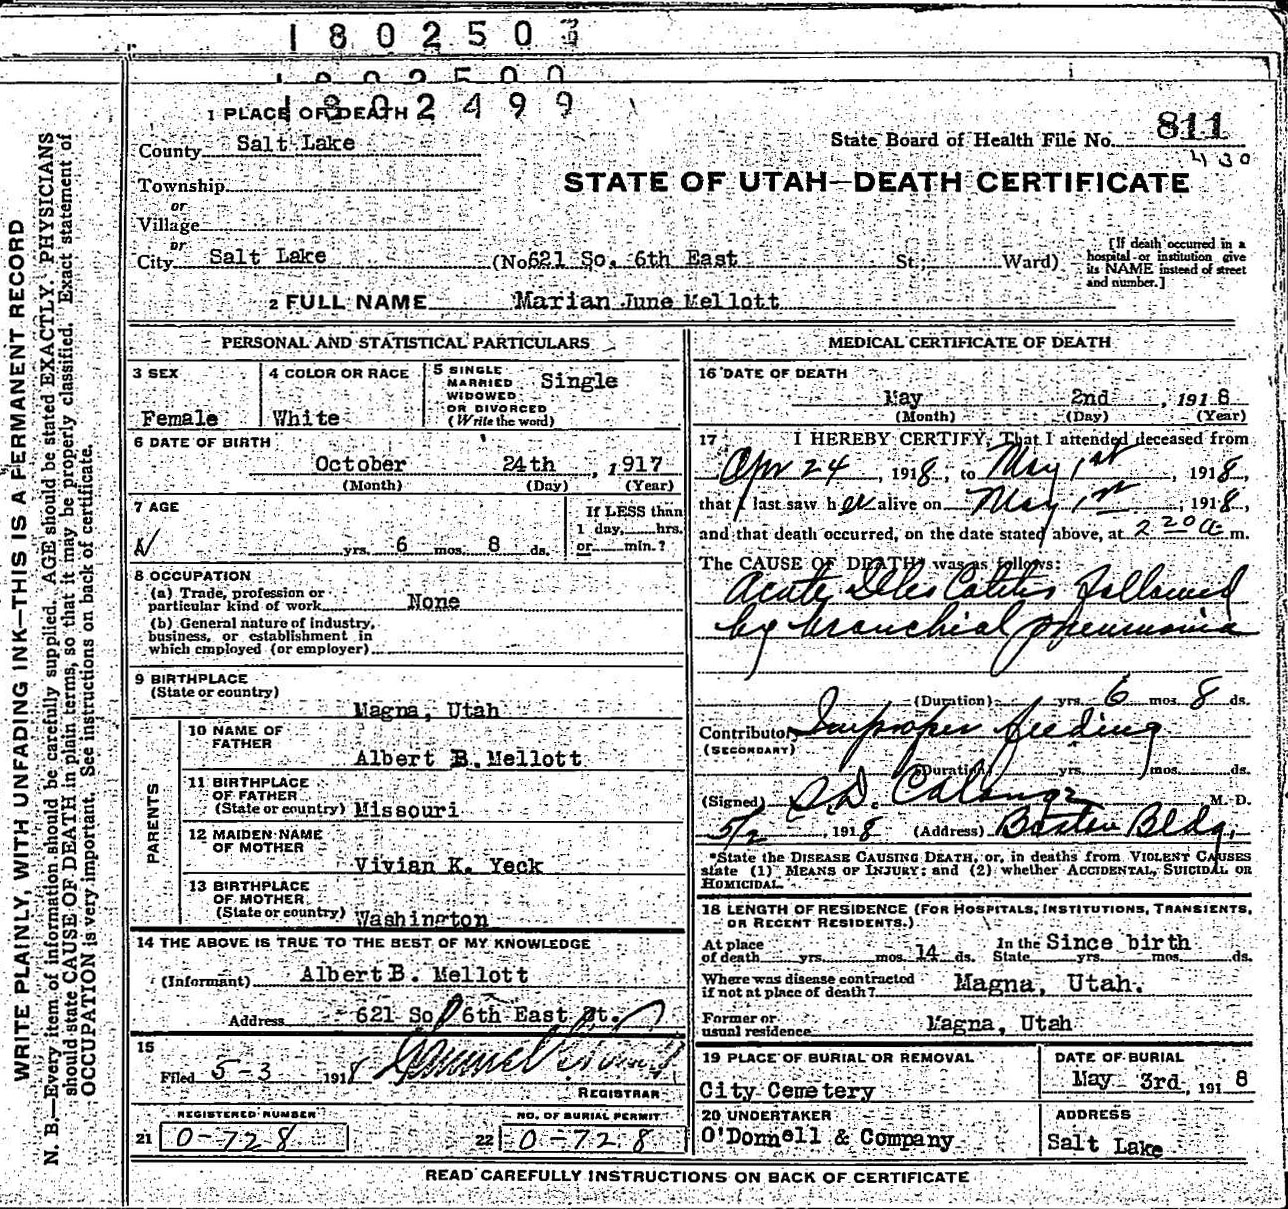 1802503
1802500
1802499
1 PLACE OF DEATH
County Salt Lake
State Board of Health File No. 811
430
Township
or
Village
or
STATE OF UTAH—DEATH CERTIFICATE
City Salt Lake (No 621 So. 6th East St; Ward)
[If death occurred in a
hospital or institution give
its NAME instead of street
and number.]
2 FULL NAME Marian June Mellott
PERSONAL AND STATISTICAL PARTICULARS
3 SEX
Female
4 COLOR OR RACE
White
5 SINGLE
MARRIED
WIDOWED
OR DIVORCED
(Write the word)
Single
6 DATE OF BIRTH
October 24th, 1917
(Month) (Day) (Year)
7 AGE
yrs. 6 mos. 8 ds.
If LESS than
1 day, hrs.
or min.?
8 OCCUPATION
(a) Trade, profession or
particular kind of work None
(b) General nature of industry,
business, or establishment in
which employed (or employer)
9 BIRTHPLACE
(State or country)
Magna, Utah
PARENTS
10 NAME OF
FATHER
Albert B. Mellott
11 BIRTHPLACE
OF FATHER
(State or country) Missouri
12 MAIDEN NAME
OF MOTHER
Vivian K. Yeck
13 BIRTHPLACE
OF MOTHER
(State or country) Washington
14 THE ABOVE IS TRUE TO THE BEST OF MY KNOWLEDGE
(Informant) Albert B. Mellott
Address 621 So 6th East St.
15
Filed 5-3 1918
REGISTRAR
REGISTERED NUMBER
21 0-728
NO. OF BURIAL PERMIT
22 0-728
MEDICAL CERTIFICATE OF DEATH
16 DATE OF DEATH
May 2nd, 1918
(Month) (Day) (Year)
17 I HEREBY CERTIFY, That I attended deceased from
Apr 24, 1918, to May 1st, 1918,
that I last saw her alive on May 1st, 1918,
and that death occurred, on the date stated above, at 2 20 a m.
The CAUSE OF DEATH* was as follows:
Acute Ileo Colitis followed
by bronchial pneumonia
(Duration) yrs. 6 mos. 8 ds.
Contributory Improper feeding
(SECONDARY)
(Duration) yrs. mos. ds.
(Signed) S. D. M. D.
5/2, 1918 (Address) Boston Bldg.
*State the DISEASE CAUSING DEATH, or, in deaths from VIOLENT CAUSES
state (1) MEANS OF INJURY; and (2) whether ACCIDENTAL, SUICIDAL OR
HOMICIDAL.
18 LENGTH OF RESIDENCE (FOR HOSPITALS, INSTITUTIONS, TRANSIENTS,
OR RECENT RESIDENTS.)
At place
of death yrs. mos. 14 ds.
In the
State Since birth yrs. mos. ds.
Where was disease contracted
if not at place of death? Magna, Utah.
Former or
usual residence Magna, Utah
19 PLACE OF BURIAL OR REMOVAL
City Cemetery
DATE OF BURIAL
May 3rd, 1918
20 UNDERTAKER
O'Donnell & Company
ADDRESS
Salt Lake
READ CAREFULLY INSTRUCTIONS ON BACK OF CERTIFICATE
WRITE PLAINLY, WITH UNFADING INK—THIS IS A PERMANENT RECORD
N. B.—Every item of information should be carefully supplied. AGE should be stated EXACTLY. PHYSICIANS
should state CAUSE OF DEATH in plain terms, so that it may be properly classified. Exact statement of
OCCUPATION is very important. See instructions on back of certificate.